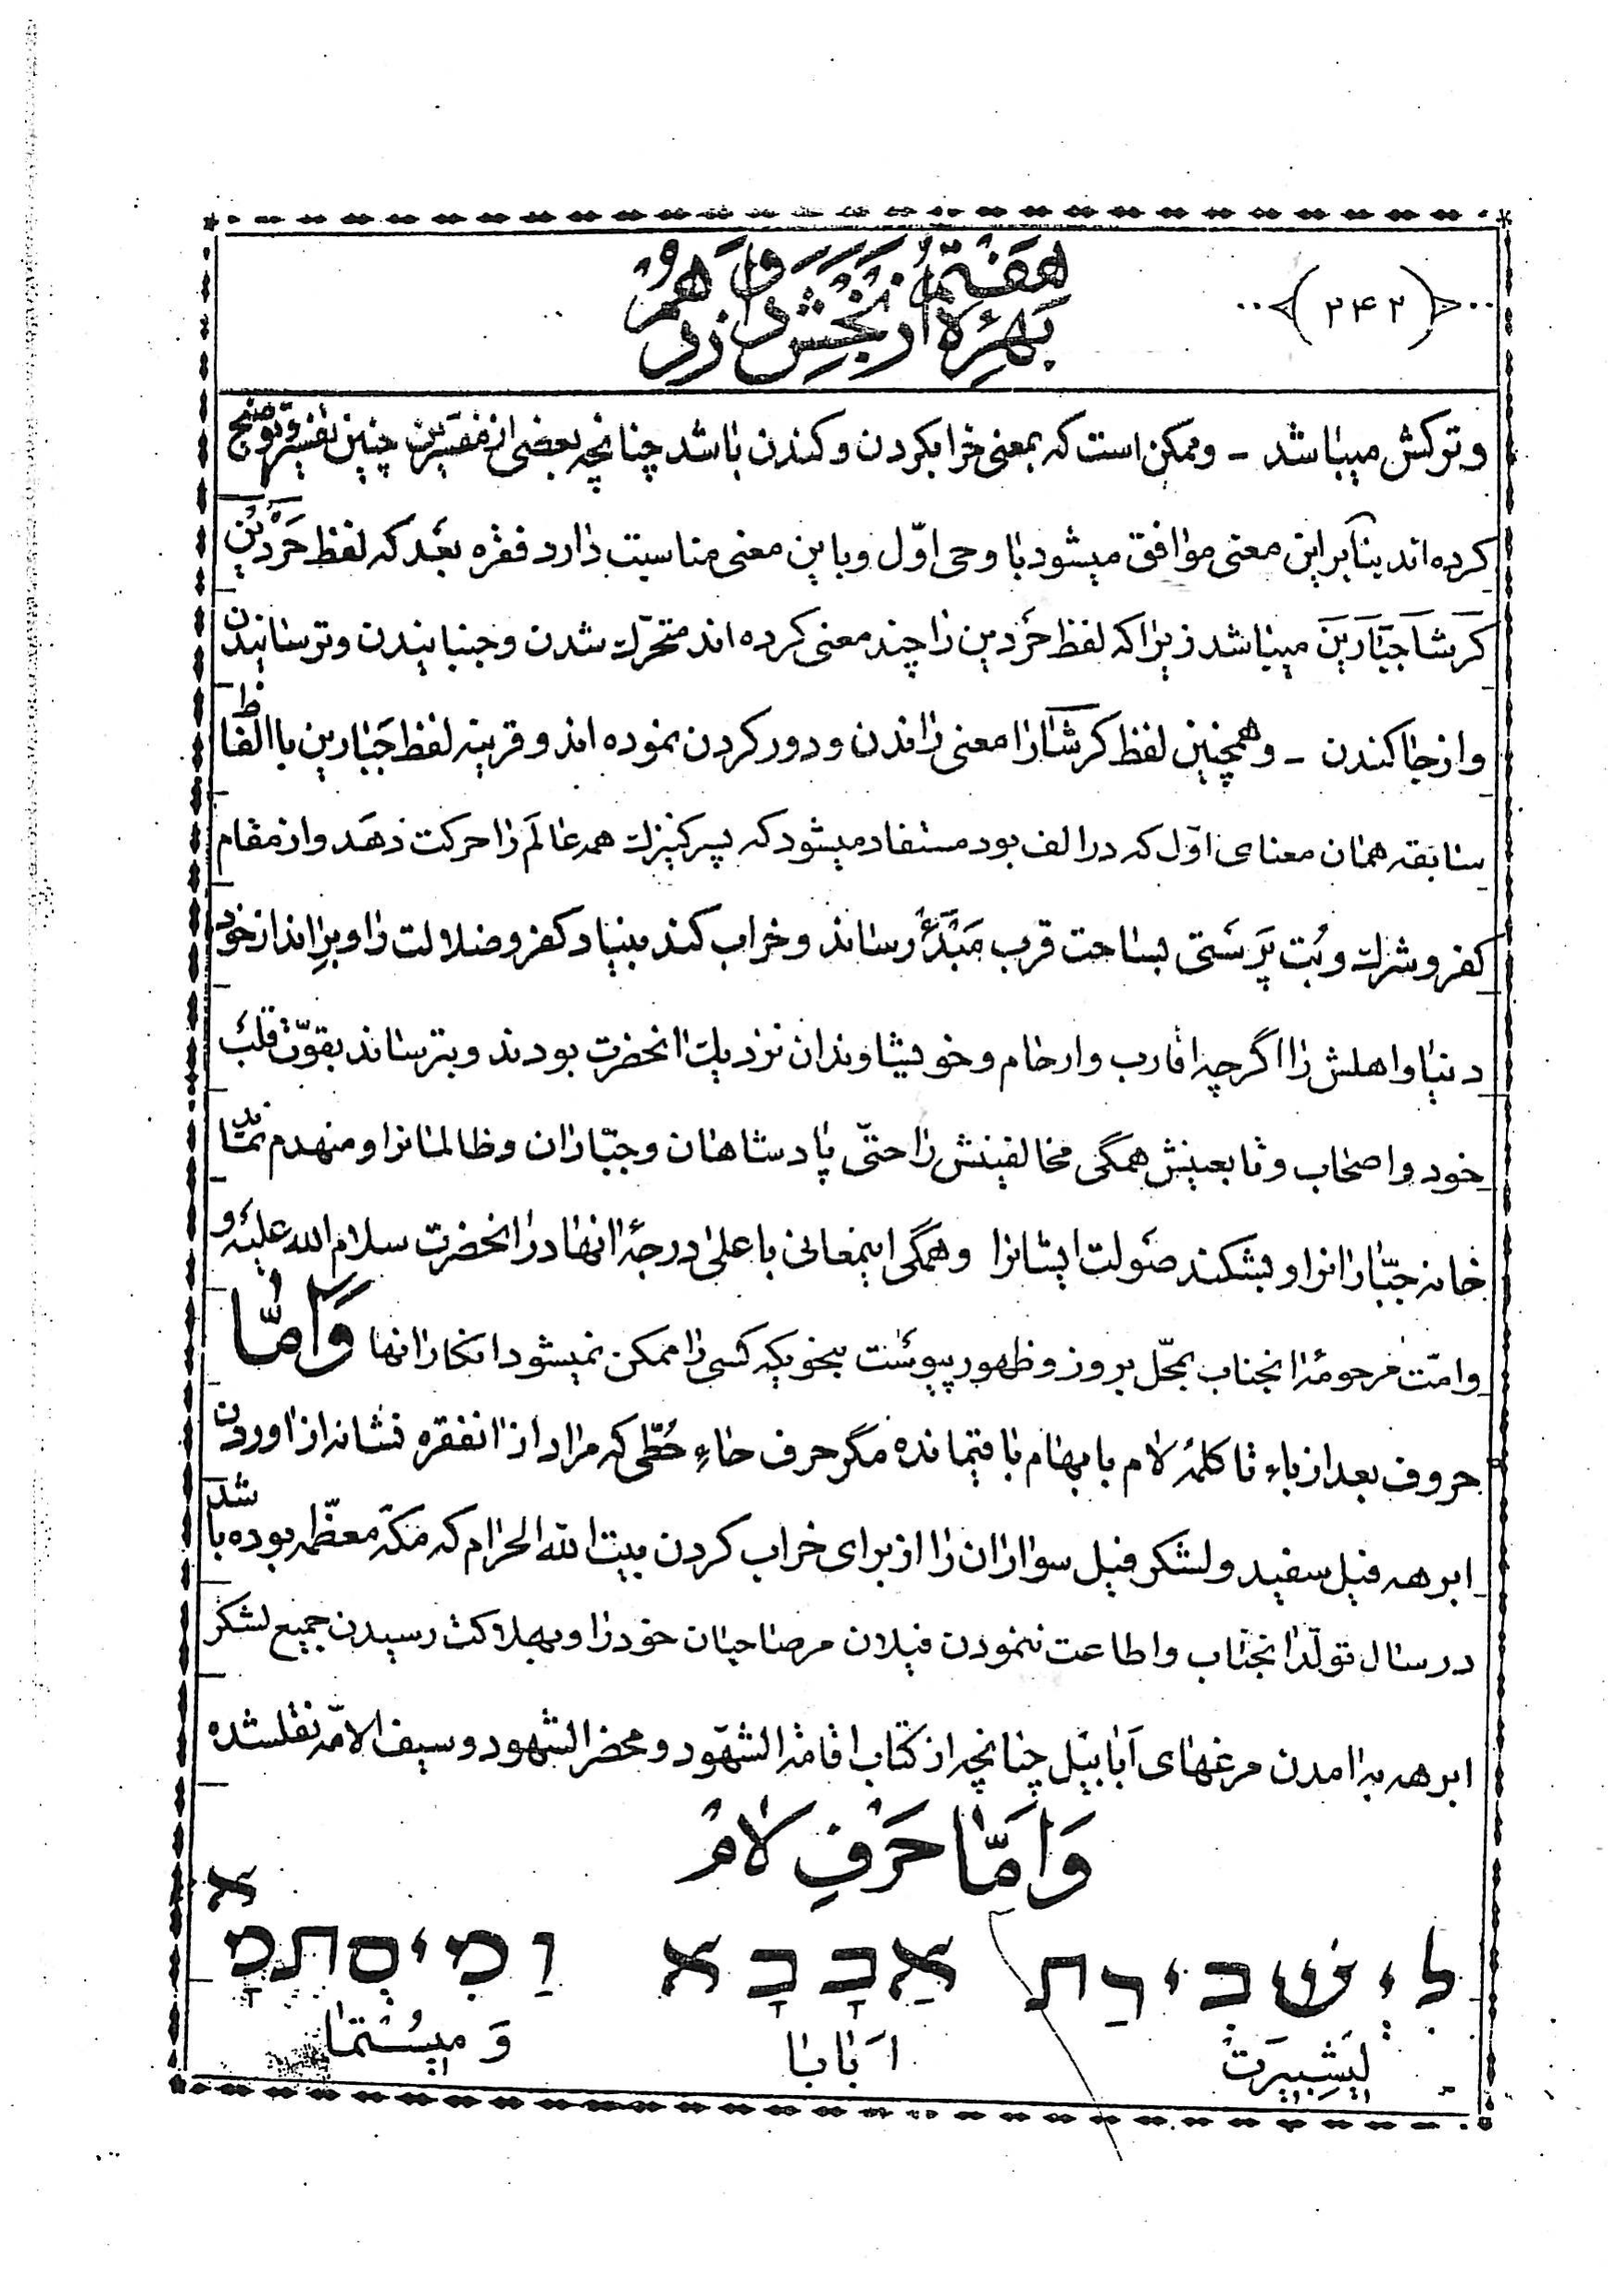 (۲۴۲)
هفتم از دوازدهم
بهره بخش
و ترکش میباشد - و ممکن است که بمعنی خرابکردن و کندن باشد چنانچه بعضی از مفسّرین چنین تفسیر و توضیح
کرده‌اند بنابر این معنی موافق میشود با وحی اوّل و باین معنی مناسبت دارد فقره بعد که لفظ حَرَدین
کَرشا جَبّارین میباشد زیرا که لفظ حَرَدین را چند معنی کرده‌اند متحرّک شدن و جنبانیدن و ترسانیدن
و از جا کندن - و همچنین لفظ کرشا را معنی راندن و دور کردن نموده‌اند و قرینه لفظ جَبّارین با الفاظ
سابقه همان معنای اوّل که در الف بود مستفاد میشود که پسر کنیزک همه عالَم را حرکت دهَد و از مقام
کفر و شرک و بُت پَرَستی بساحت قرب مَبْدَء رساند و خراب کند بنیاد کفر و ضلالت را و براند از خود
دنیا و اهلش را اگر چه اقارب و ارحام و خویشاوندان نزدیک انحضرت بودند و بترساند بقوّت قلب
خود و اصحاب و تابعینش همگی مخالفینش را حتّی پادشاهان و جبّاران و ظالمانرا و منهدم نماید
خانه جبّارانرا و بشکند صَولت ایشانرا و همگی اینمعانی باعلی درجهٔ انها در انحضرت سلام الله علیه و
و امّت مرحومهٔ انجناب بمحّل بروز و ظهور پیوست بنحویکه کسی را ممکن نمیشود انکار انها وَامّا
حروف بعد از باء تا کلمهٔ لام بابهام باقیمانده مگر حرف حاءِ حُطّی که مراد از انفقره نشانه از اوردن
ابرهه فیل سفید و لشکر فیل سواران را از برای خراب کردن بیت الله الحرام که مکّه معظّمه بوده باشد
در سال تولّد انجناب و اطاعت ننمودن فیلان مر صاحبان خود را و بهلاکت رسیدن جمیع لشکر
ابرهه به امدن مرغهای اَبابیل چنانچه از کتاب اقامة الشهود و محضر الشهود و سیف الامّه نقلشده
وَاَمّا حَرْفِ لامْ
לִישְׁבִירַת אַבָבָא וַמִיסְתמָא
لِیشبیرَتْ اَبابا وَ میسْتما